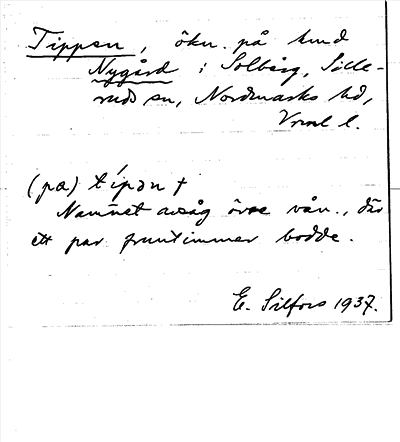 Tippen, ökn. på hmd
Nygård i Solberg, Sille-
ruds sn, Nordmarks hd,
Vrml l.
(pa) típən †
Namnet avsåg övre vån., där
ett par fruntimmer bodde.
E. Silfors 1937.